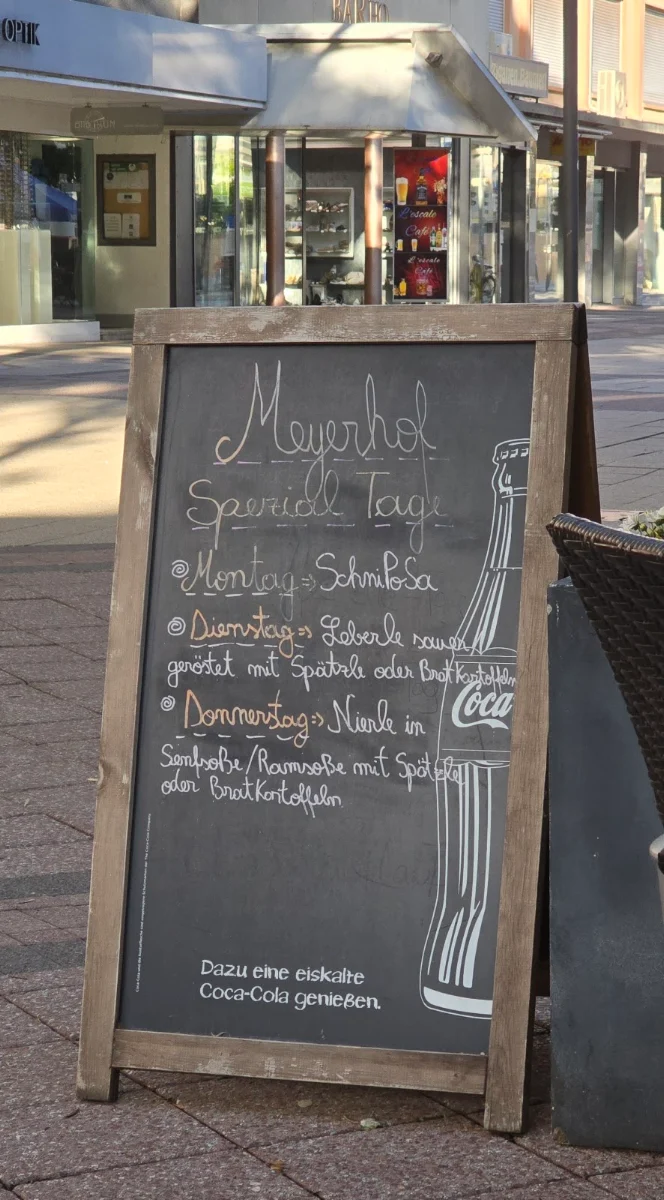 OPTIK
BARTO
L'escale
Café
L'escale
Café
Meyerhof
Speziall Tage
Montag => SchniPoSa
Dienstag => Leberle sauer
geröstet mit Spätzle oder Bratkartoffeln
Donnerstag => Nierle in
Senfsoße/Ramsoße mit Spätzle
oder Bratkartoffeln
Coca
Dazu eine eiskalte
Coca-Cola genießen.